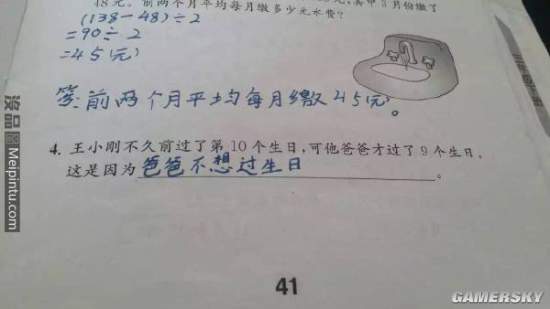 48元。前两个月平均每月缴多少元水费？
(138-48)÷2
=90÷2
=45(元)
答:前两个月平均每月缴45元。
4. 王小刚不久前过了第10个生日,可他爸爸才过了9个生日,
这是因为爸爸不想过生日。
41
没品图 Meipintu.com
GAMERSKY